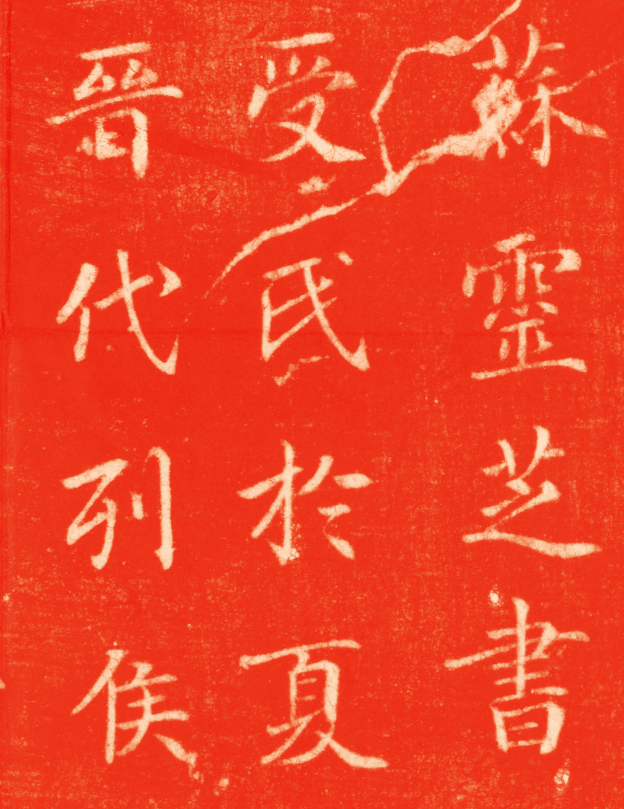 蘇靈芝書
受氏於夏
晉代列侯